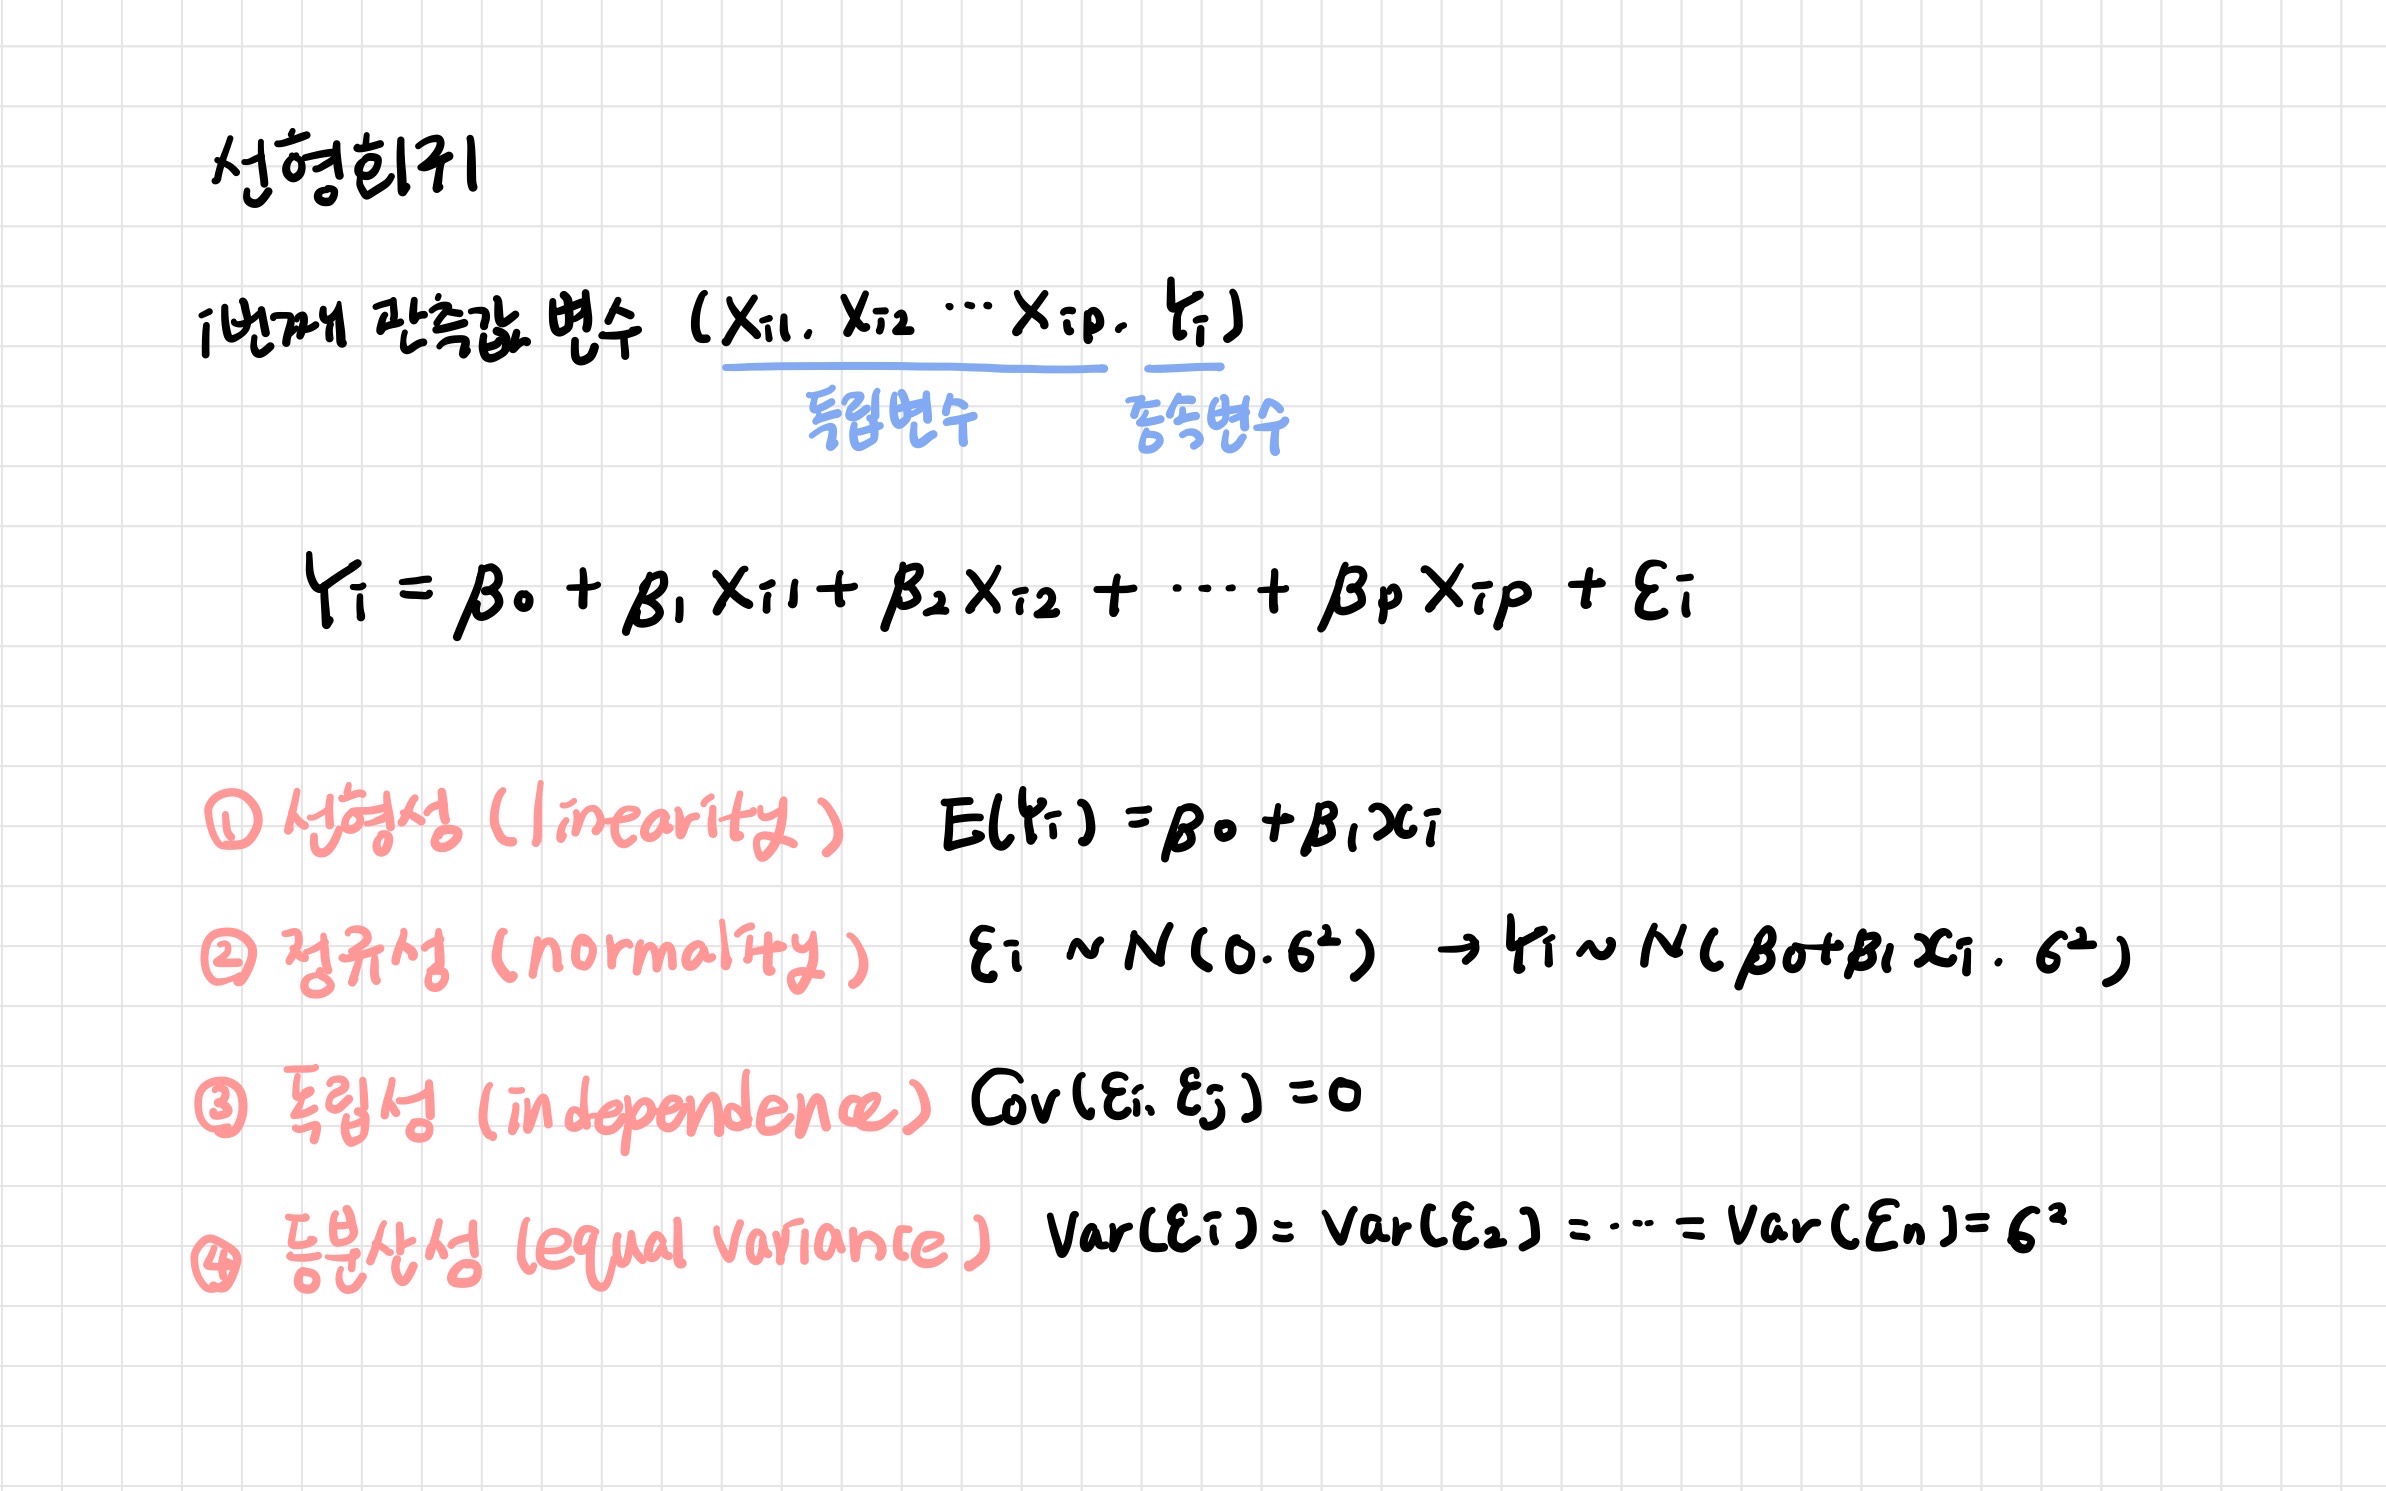 선형회귀
i번째 관측값 변수 (Xi1, Xi2 ... Xip, Yi)
독립변수 종속변수
Yi = β0 + β1 Xi1 + β2 Xi2 + ... + βp Xip + εi
① 선형성 (linearity) E(Yi) = β0 + β1 xi
② 정규성 (normality) εi ~ N(0, σ²) → Yi ~ N(β0+β1 xi, σ²)
③ 독립성 (independence) Cov(εi, εj) = 0
④ 등분산성 (equal variance) Var(εi) = Var(ε2) = ... = Var(εn) = σ²